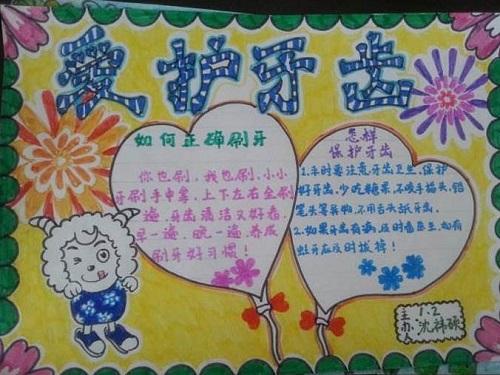 愛护牙齿
如何正确刷牙
你也刷,我也刷,小小
牙刷手中拿,上下左右全刷
遍,牙齿清洁又好看,
早一遍,晚一遍,养成
刷牙好习惯!
怎样
保护牙齿
1.平时要注意牙齿卫生,保护
好牙齿,少吃糖果,不咬手指头、铅
笔头等异物,不用舌头舐牙齿。
2.如果牙齿有病,及时看医生,如有
蛀牙应及时拔掉!
主办人
1.2
沈祎硕